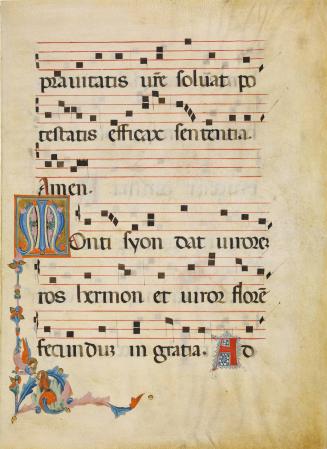 prauitatis ur̄e soluat po
testatis efficax sententia.
Amen.
Monti syon dat uirorer
ros hermon et uiror florē
fecundus in gratia. Ad